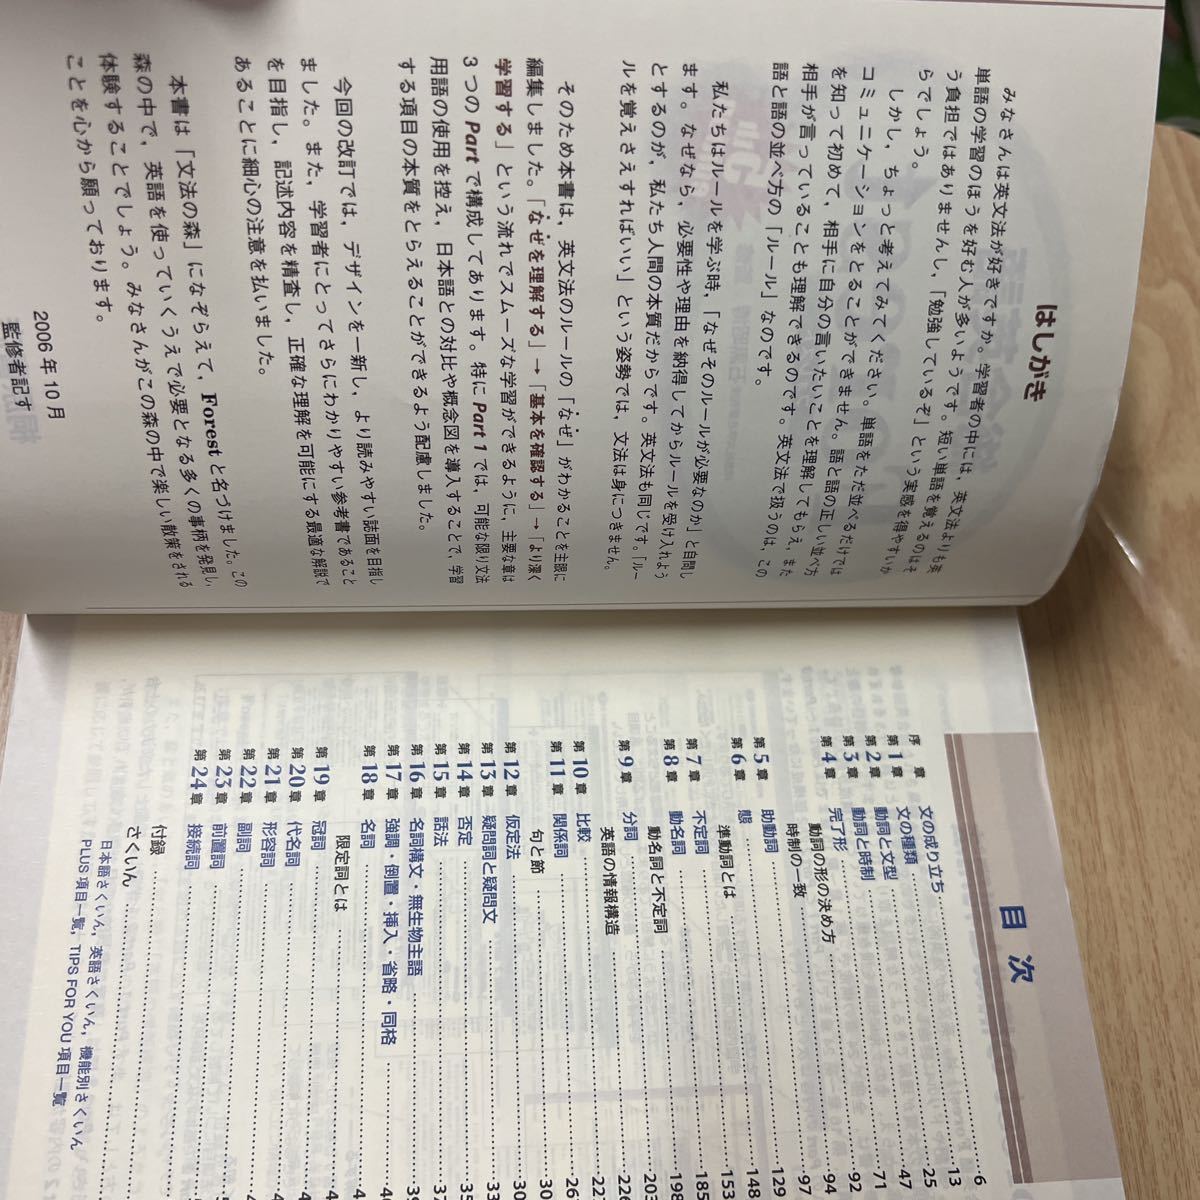 はしがき
みなさんは英文法が好きですか。学習者の中には，英文法よりも英
単語の学習のほうを好む人が多いようです。短い単語を覚えるのはそ
う負担ではありませんし，「勉強しているぞ」という実感を得やすいか
らでしょう。
しかし，ちょっと考えてみてください。単語をただ並べるだけでは
コミュニケーションをとることができません。語と語の正しい並べ方
を知って初めて，相手に自分の言いたいことを理解してもらえ，また
相手が言っていることも理解できるのです。英文法で扱うのは，この
語と語の並べ方の「ルール」なのです。
私たちはルールを学ぶ時，「なぜそのルールが必要なのか」と自問し
ます。なぜなら，必要性や理由を納得してからルールを受け入れよう
とするのが，私たち人間の本質だからです。英文法も同じです。「ルー
ルを覚えさえすればいい」という姿勢では，文法は身につきません。
そのため本書は，英文法のルールの「なぜ」がわかることを主眼に
編集しました。「なぜを理解する」→「基本を確認する」→「より深く
学習する」という流れでスムーズな学習ができるように，主要な章は
3つのPartで構成してあります。特にPart 1では，可能な限り文法
用語の使用を控え，日本語との対比や概念図を導入することで，学習
する項目の本質をとらえることができるよう配慮しました。
今回の改訂では，デザインを一新し，より読みやすい誌面を目指し
ました。また，学習者にとってさらにわかりやすい参考書であること
を目指し，記述内容を精査し，正確な理解を可能にする最適な解説で
あることに細心の注意を払いました。
本書は「文法の森」になぞらえて，Forestと名づけました。この
森の中で，英語を使っていくうえで必要となる多くの事柄を発見し，
体験することでしょう。みなさんがこの森の中で楽しい散策をされる
ことを心から願っております。
2006年10月
監修者記す
目次
序 章 文の成り立ち 6
第1章 文の種類 13
第2章 動詞と文型 25
第3章 動詞と時制 47
第4章 完了形 71
動詞の形の決め方 92
時制の一致 94
第5章 助動詞 97
第6章 態 129
準動詞とは 148
第7章 不定詞 153
第8章 動名詞 185
動名詞と不定詞 198
第9章 分詞 203
英語の情報構造 226
第10章 比較 227
第11章 関係詞 26
句と節 30
第12章 仮定法 30
第13章 疑問詞と疑問文 33
第14章 否定 35
第15章 話法 37
第16章 名詞構文・無生物主語 39
第17章 強調・倒置・挿入・省略・同格 4
第18章 名詞 4
限定詞とは 4
第19章 冠詞 4
第20章 代名詞 4
第21章 形容詞 4
第22章 副詞 4
第23章 前置詞 5
第24章 接続詞 5
付録
さくいん
日本語さくいん，英語さくいん，機能別さくいん
PLUS 項目一覧，TIPS FOR YOU 項目一覧